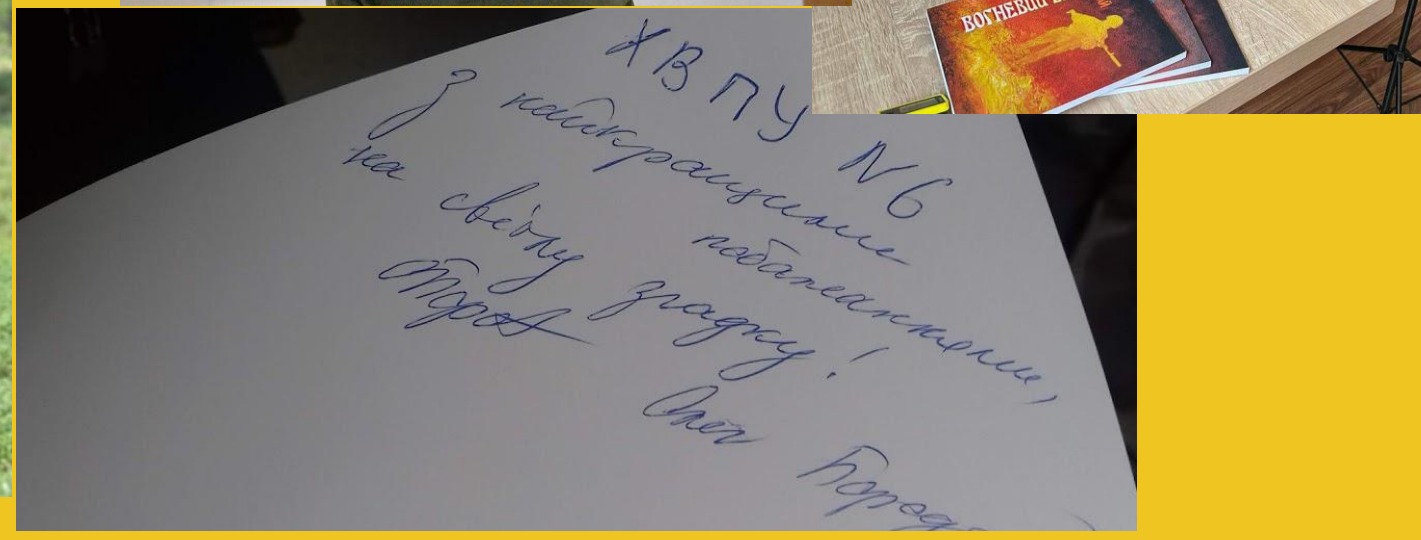 ВОГНЕВИЙ
ХВПУ N6
З найкращими побажаннями,
на світлу згадку!
Олег